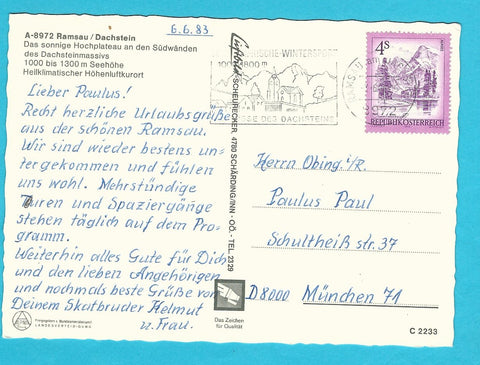 6.6.83
A-8972 Ramsau / Dachstein
Das sonnige Hochplateau an den Südwänden
des Dachsteinmassivs
1000 bis 1300 m Seehöhe
Heilklimatischer Höhenluftkurort
Lieber Paulus!
Recht herzliche Urlaubsgrüße
aus der schönen Ramsau.
Wir sind wieder bestens un-
tergekommen und fühlen
uns wohl. Mehrstündige
Turen und Spaziergänge
stehen täglich auf dem Pro-
gramm.
Weiterhin alles Gute für Dich
und den lieben Angehörigen
und nochmals beste Grüße von
Deinem Skatbruder Helmut
u. Frau.
LANDESVERTEIDIGUNG
SCHEURECKER, 4780 SCHÄRDING/INN - OÖ. - TEL. 2329
Das Zeichen
für Qualität
DES DACHSTEINS
8972
4S
REPUBLIK ÖSTERREICH
Herrn Obing. i/R.
Paulus Paul
Schultheiß str. 37
D8000 München 71
C 2233